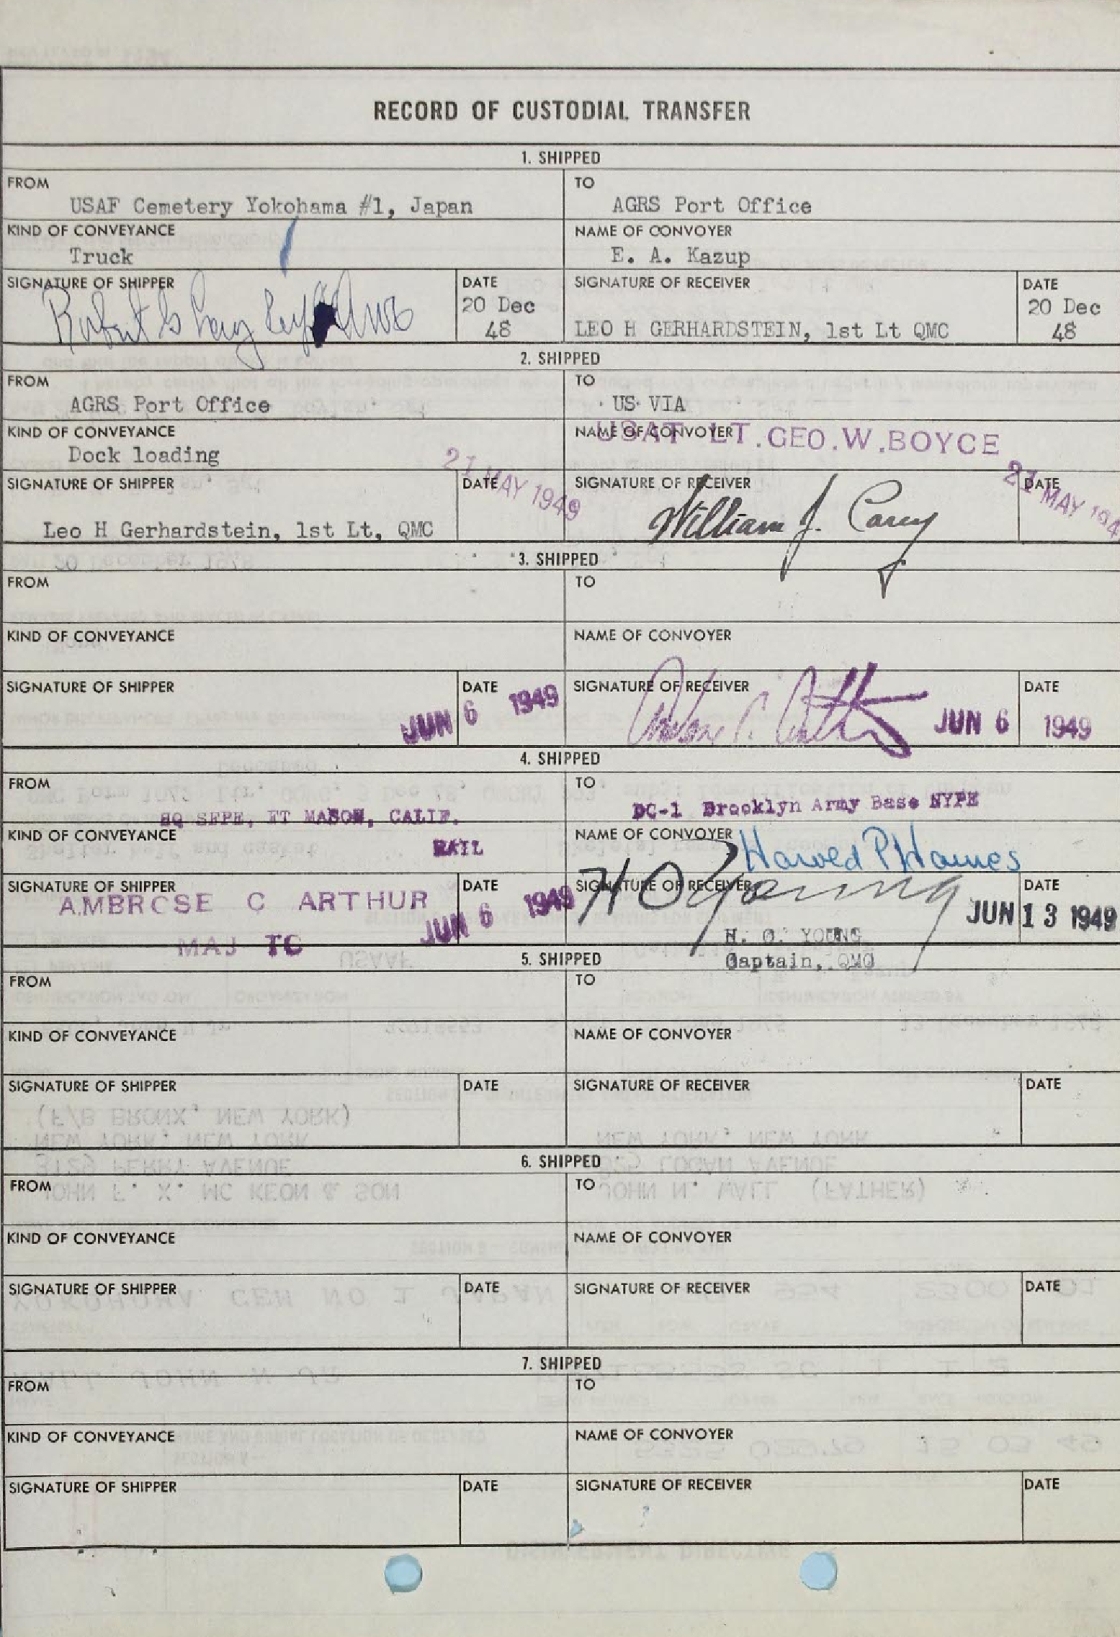 RECORD OF CUSTODIAL TRANSFER
1. SHIPPED
FROM
USAF Cemetery Yokohama #1, Japan
TO
AGRS Port Office
KIND OF CONVEYANCE
Truck
NAME OF CONVOYER
E. A. Kazup
SIGNATURE OF SHIPPER
DATE
20 Dec
48
SIGNATURE OF RECEIVER
LEO H GERHARDSTEIN, 1st Lt QMC
DATE
20 Dec
48
2. SHIPPED
FROM
AGRS Port Office
TO
US VIA
KIND OF CONVEYANCE
Dock loading
NAME OF CONVOYER
USAT LT.GEO.W.BOYCE
SIGNATURE OF SHIPPER
Leo H Gerhardstein, 1st Lt, QMC
DATE
21 MAY 1949
SIGNATURE OF RECEIVER
William J. Carey
DATE
21 MAY 194
3. SHIPPED
FROM
TO
KIND OF CONVEYANCE
NAME OF CONVOYER
SIGNATURE OF SHIPPER
DATE
JUN 6 1949
SIGNATURE OF RECEIVER
DATE
JUN 6 1949
4. SHIPPED
FROM
HQ SFPE, FT MASON, CALIF.
TO
DC-1 Brooklyn Army Base NYPE
KIND OF CONVEYANCE
RAIL
NAME OF CONVOYER
Harold P. Haines
SIGNATURE OF SHIPPER
AMBROSE C ARTHUR
MAJ TC
DATE
JUN 6 1949
SIGNATURE OF RECEIVER
H O Young
H. O. YOUNG
Captain, QMC
DATE
JUN 13 1949
5. SHIPPED
FROM
TO
KIND OF CONVEYANCE
NAME OF CONVOYER
SIGNATURE OF SHIPPER
DATE
SIGNATURE OF RECEIVER
DATE
6. SHIPPED
FROM
TO
KIND OF CONVEYANCE
NAME OF CONVOYER
SIGNATURE OF SHIPPER
DATE
SIGNATURE OF RECEIVER
DATE
7. SHIPPED
FROM
TO
KIND OF CONVEYANCE
NAME OF CONVOYER
SIGNATURE OF SHIPPER
DATE
SIGNATURE OF RECEIVER
DATE